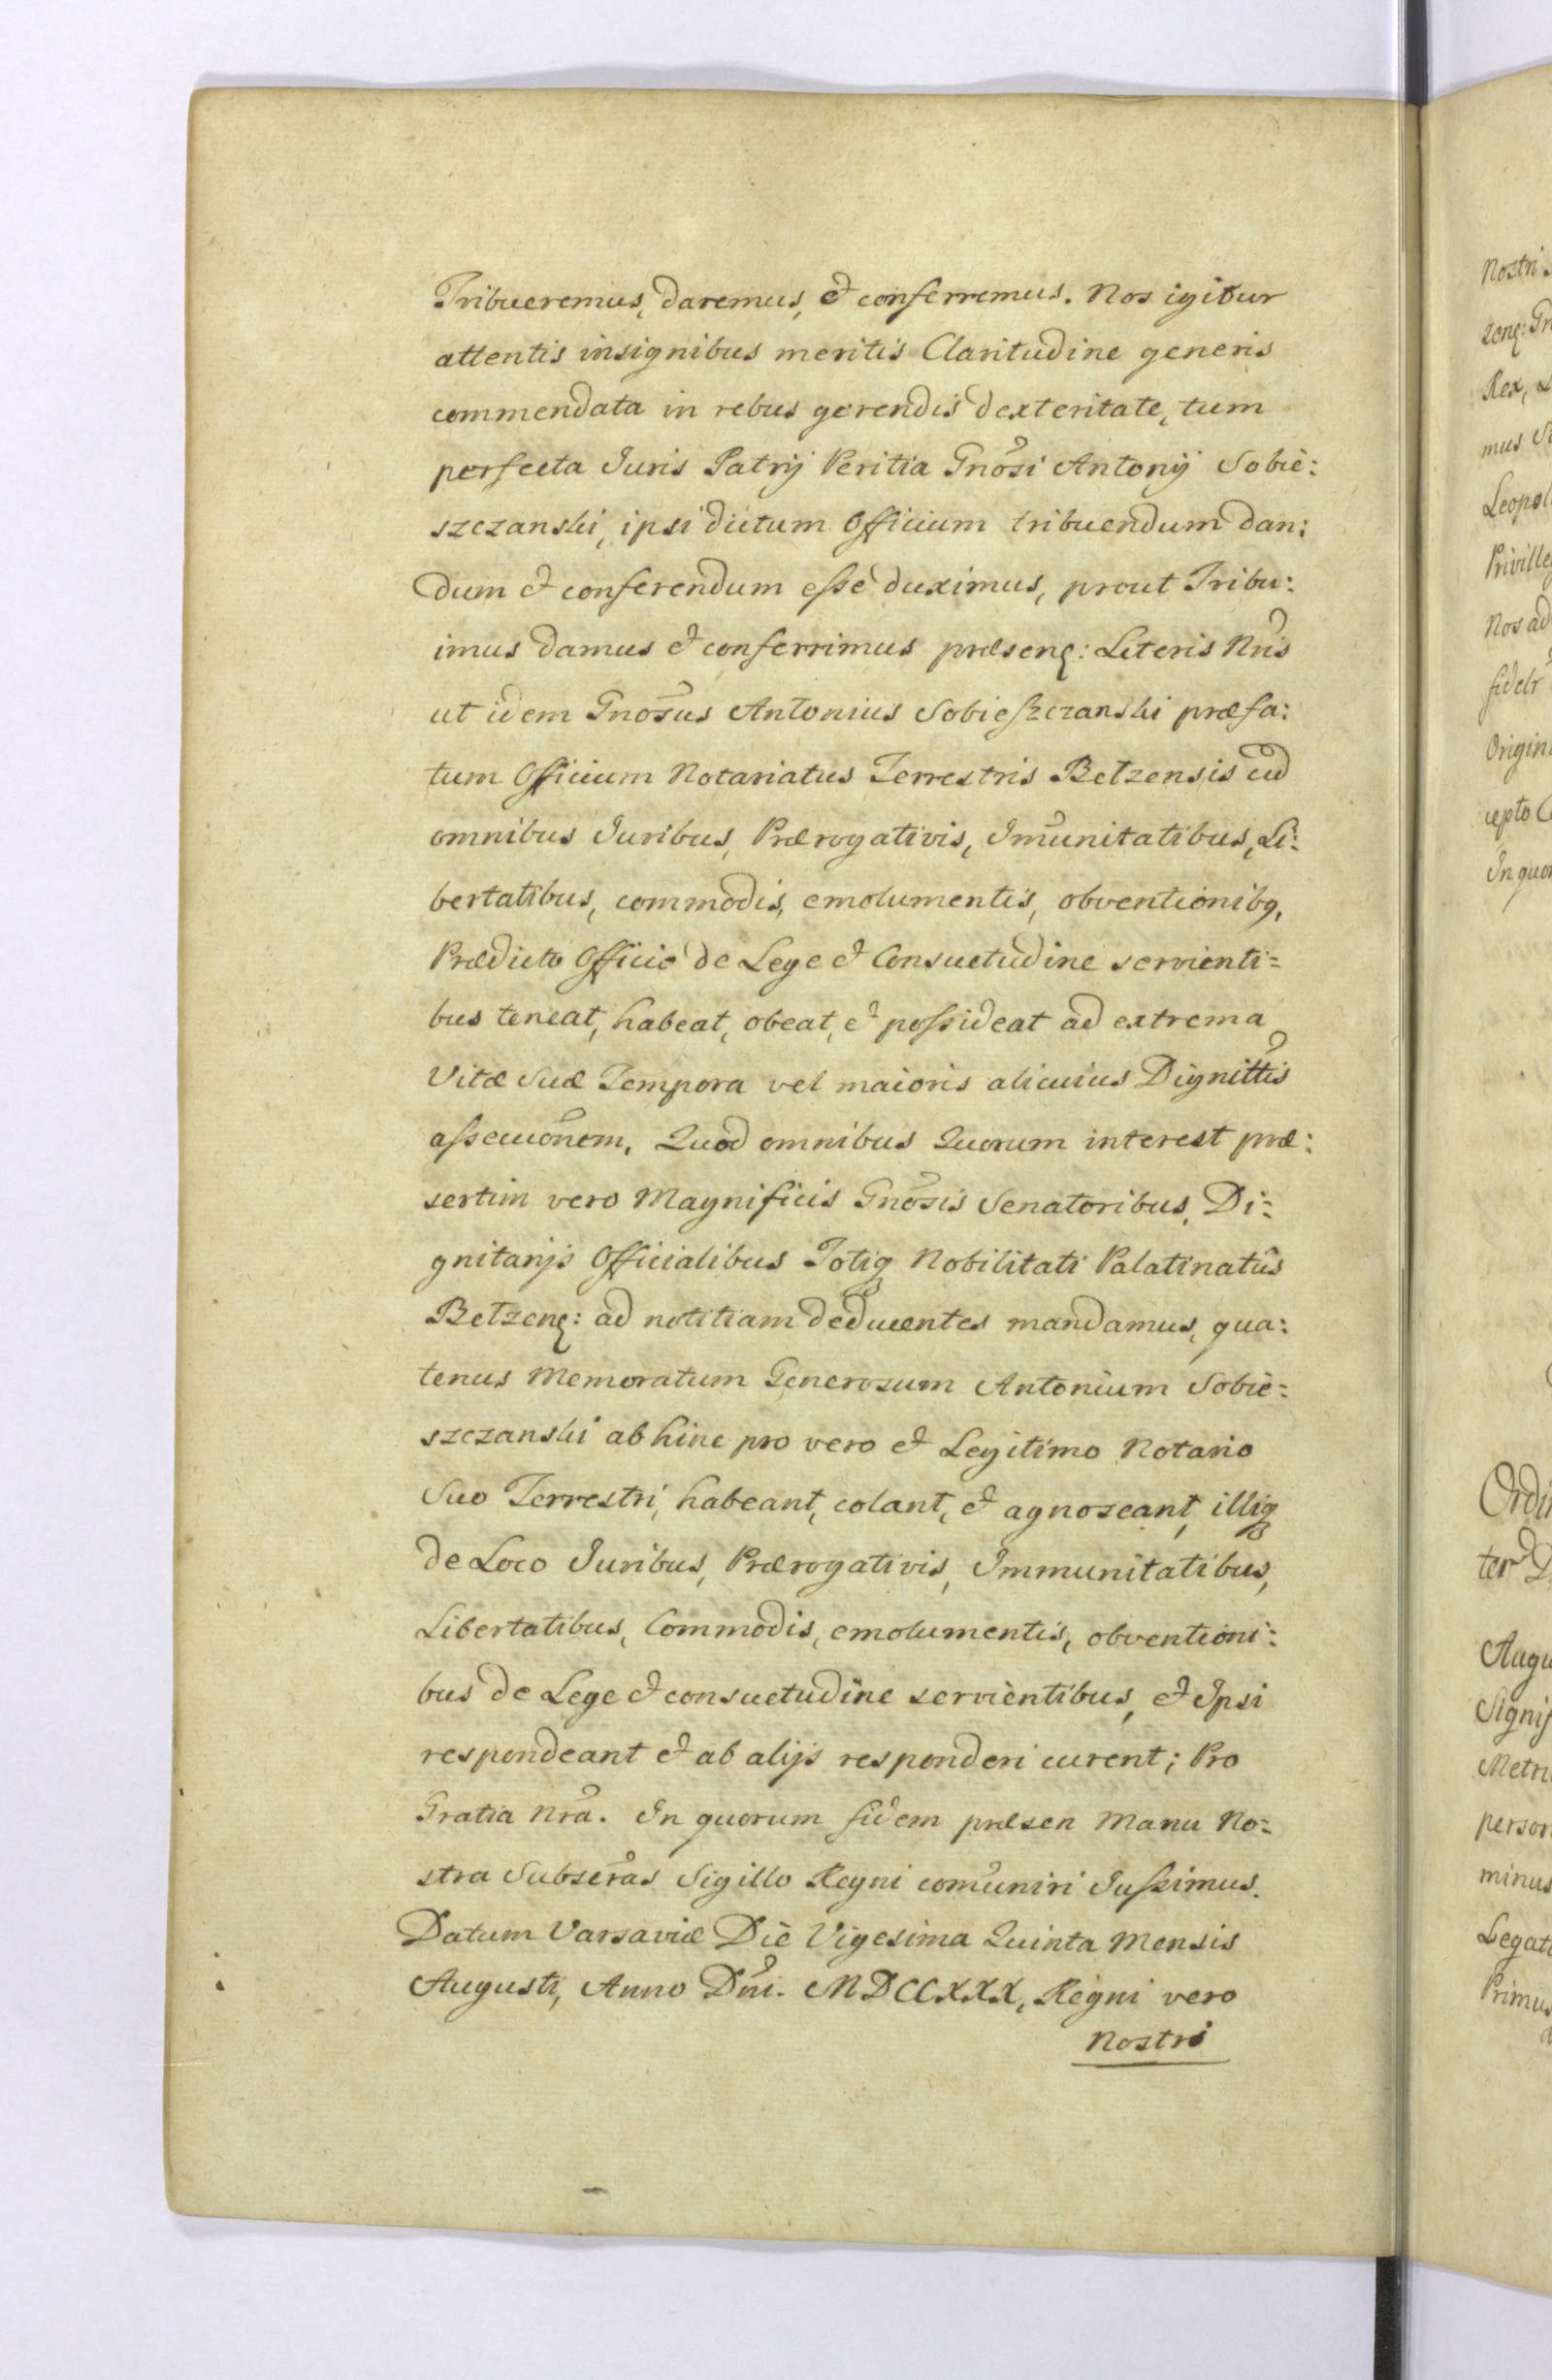 Tribueremus, daremus, et conferremus. Nos igitur
attentis insignibus meritis Claritudine generis
commendata in rebus gerendis dexteritate, tum
perfecta Juris Patrij Peritia Gnosi Antonij Sobie:
szczanski, ipsi dictum Officium tribuendum dan:
dum et conferendum esse duximus, prout Tribu:
imus damus et conferrimus præsenz: Literis Nris
ut idem Gnosus Antonius Sobieszczanski præfa:
tum Officium Notariatus Terrestris Betzensis cu
omnibus Juribus, Prærogativis, Imunitatibus, Li:
bertatibus, commodis, emolumentis, obventionibq,
Prædicto Officio de Lege et Consuetudine servienti=
bus teneat, habeat, obeat, et possideat ad extrema
Vitæ Suæ Tempora vel maioris alicuius Dignittis
assecuonem. Quod omnibus Quorum interest præ:
sertim vero Magnificis Gnosis Senatoribus, Di:
gnitarijs Officialibus Totiq Nobilitati Palatinatûs
Betzenz: ad notitiam deducentes mandamus, qua:
tenus Memoratum Generosum Antonium Sobie:
szczanski ab hinc pro vero et Legitimo Notario
Suo Terrestri, habeant, colant, et agnoscant, illiq
de Loco Juribus, Prærogativis, Immunitatibus,
Libertatibus, Commodis, emolumentis, obventioni:
bus de Lege et consuetudine servientibus, et Ipsi
respondeant et ab alijs responderi curent; Pro
Gratia Nra. In quorum fidem præsen Manu No:
stra Subscras Sigillo Regni comuniri Jussimus.
Datum Varsaviæ Die Vigesima Quinta Mensis
Augusti, Anno Dni. MDCCXXX, Regni vero
Nostri
Nostri
zenz: Gn
Rex,
mus
Leopol
Priville
Nos ad
fidelr
Origin
cepto
In quor
Ordi
ter
Augu
Signif
Metri
person
minus
Legat
Primus